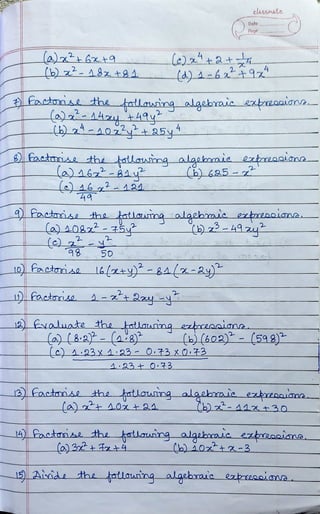 classmate
Date
Page
(a) x² + 6x + 9 (c) x⁴ + 2 + 1/x⁴
(b) x² - 18x + 81 (d) 1 - 6x² + 9x⁴
7) Factorise the following algebraic expressions.
(a) x² - 14xy + 49y²
(b) x⁴ - 10x²y² + 25y⁴
8) Factorise the following algebraic expressions
(a) 16x² - 81y² (b) 625 - x²
(c) 16/49 x² - 121
9) Factorise the following algebraic expressions.
(a) 108x² - 75y² (b) x³ - 49xy²
(c) x²/98 - y²/50
10) Factorise 16(x+y)² - 81(x-2y)²
11) Factorise 1 - x² + 2xy - y²
12) Evaluate the following expressions.
(a) (8.2)² - (1.8)² (b) (602)² - (598)²
(c) 1.23 x 1.23 - 0.73 x 0.73
1.23 + 0.73
13) Factorise the following algebraic expressions.
(a) x² + 10x + 21 (b) x² - 11x + 30
14) Factorise the following algebraic expressions.
(a) 3x² + 7x + 4 (b) 10x² + x - 3
15) Divide the following algebraic expressions.